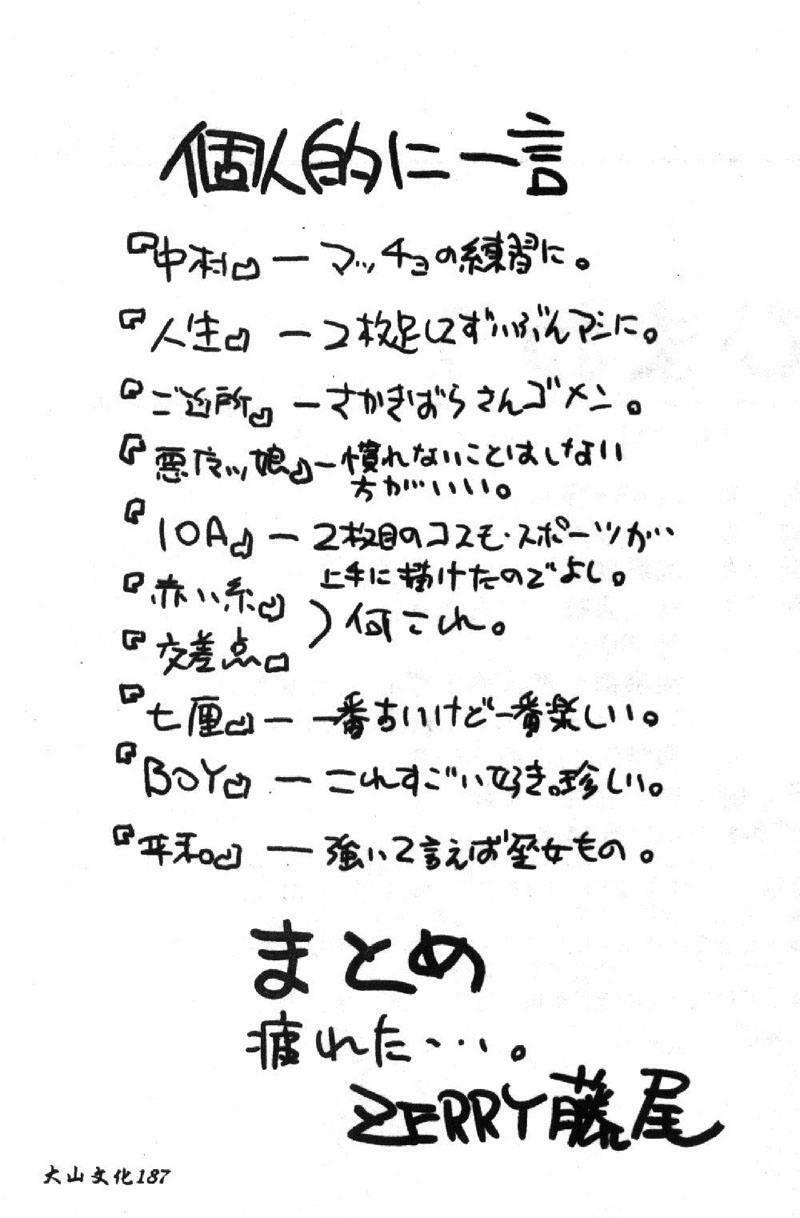 個人的に一言
『中村』― マッチョの練習に。
『人生』― 2枚足してずいぶんマシに。
『ご近所』― さかきばらさんゴメン。
『悪魔ッ娘』― 慣れないことはしない
方がいい。
『10A』― 2枚目のコスモ・スポーツが…
上手に描けたのでよし。
『赤い糸』
『交差点』) 何これ。
『七厘』― 一番古いけど一番楽しい。
『BOY』― これすごい好き。珍しい。
『平和。』― 強いて言えば巫女もの。
まとめ
疲れた…。
ZERRY藤尾
大山文化187